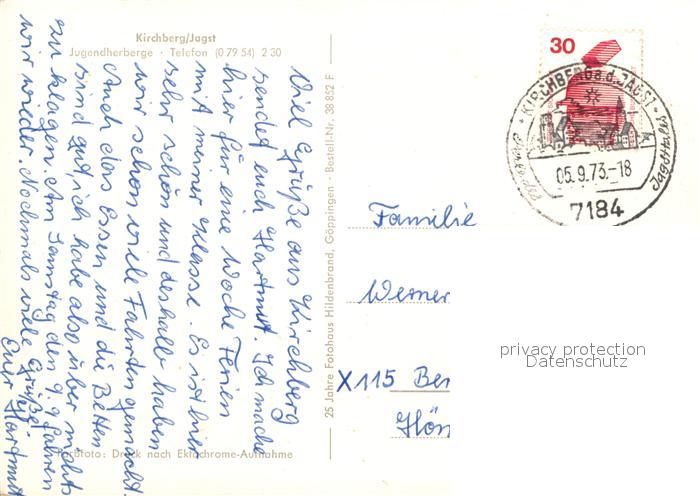 Kirchberg/Jagst
Jugendherberge · Telefon (0 79 54) 2 30
Viel Grüße aus Kirchberg
sendet euch Hartmut. Ich mache
hier für eine Woche Ferien
mit meiner Klasse. Es ist hier
sehr schön und deshalb haben
wir schon viele Fahrten gemacht.
Auch das Essen und die Betten
sind gut, ich habe also über nichts
zu klagen. Am Samstag den 9.9 fahren
wir wieder. Nochmals viele Grüße.
Euer Hartmut
Farbfoto: Druck nach Ektachrome-Aufnahme
25 Jahre Fotohaus Hildenbrand, Göppingen · Bestell-Nr. 38 852 F
30
KIRCHBERG a. d. JAGST
05.9.73.-18
7184
Familie
Werner
X115 Ber
Hön
privacy protection
Datenschutz